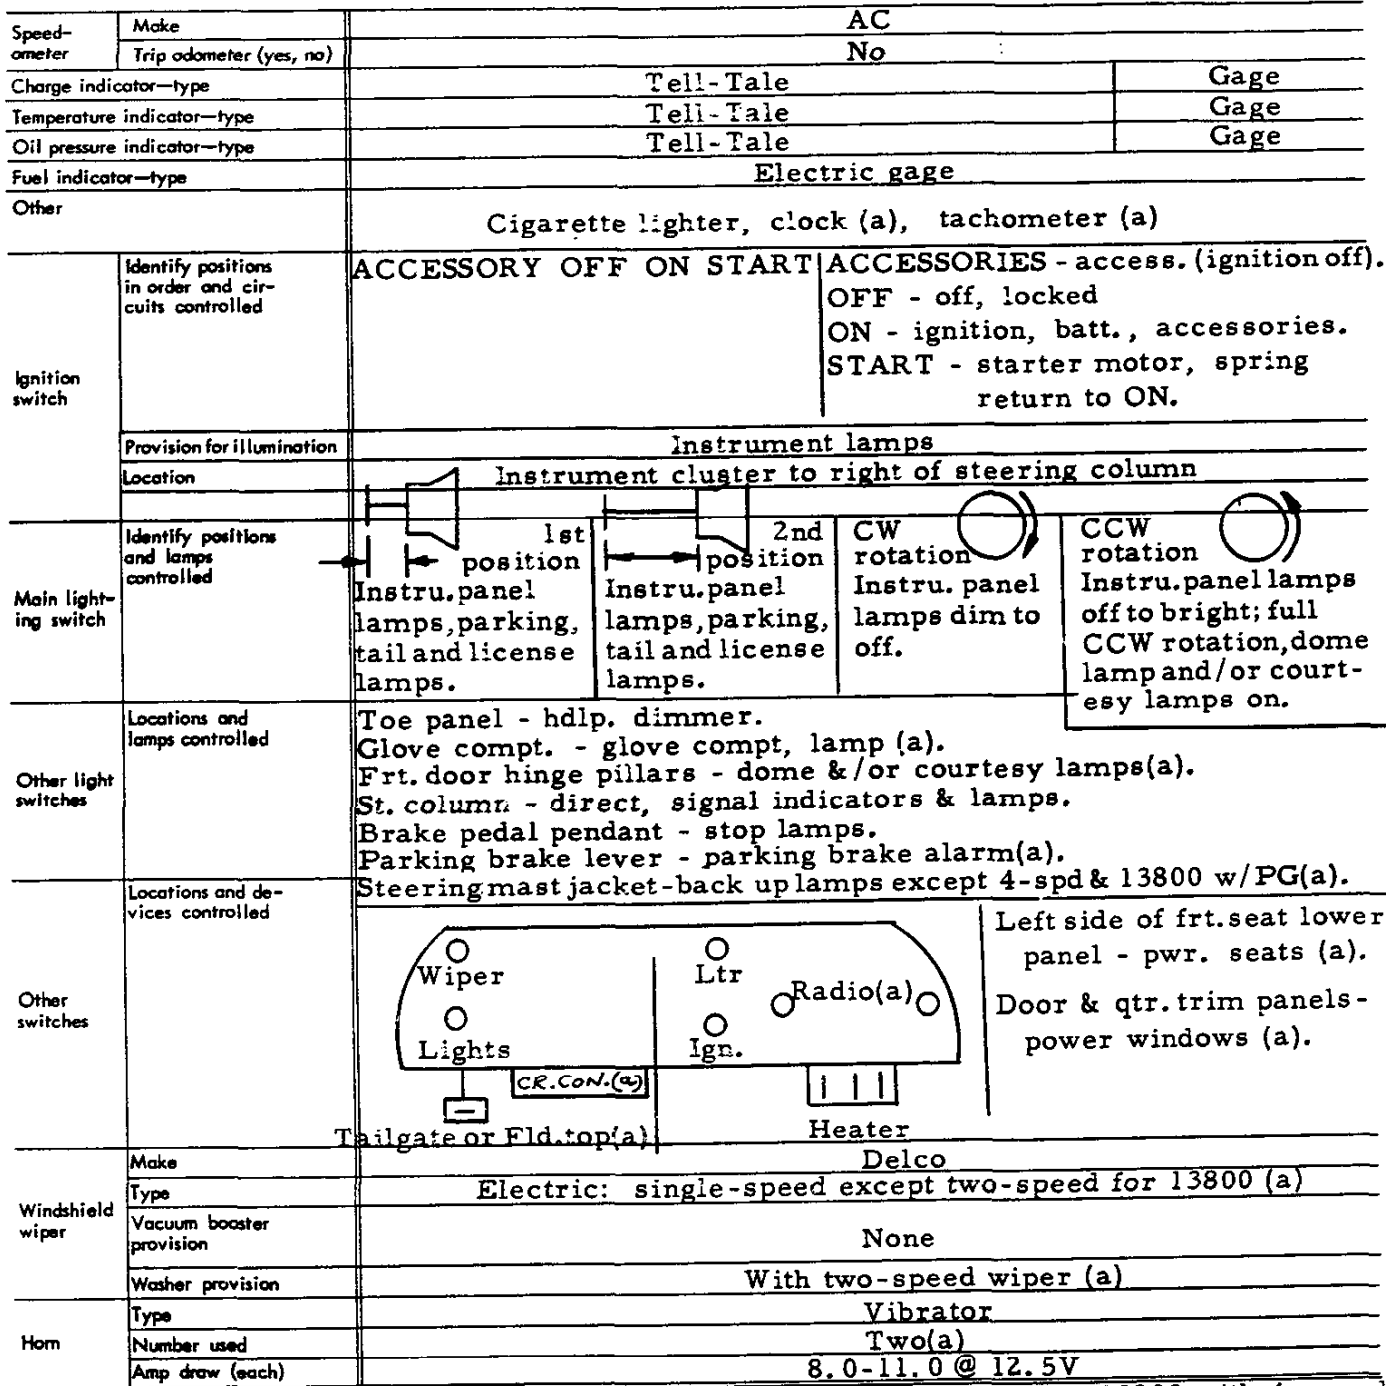 Speed-
ometer
Make
AC
Trip odometer (yes, no)
No
Charge indicator—type
Tell-Tale
Gage
Temperature indicator—type
Tell-Tale
Gage
Oil pressure indicator—type
Tell-Tale
Gage
Fuel indicator—type
Electric gage
Other
Cigarette lighter, clock (a), tachometer (a)
Ignition
switch
Identify positions
in order and cir-
cuits controlled
ACCESSORY OFF ON START
ACCESSORIES - access. (ignition off).
OFF - off, locked
ON - ignition, batt., accessories.
START - starter motor, spring
return to ON.
Provision for illumination
Instrument lamps
Location
Instrument cluster to right of steering column
Main light-
ing switch
Identify positions
and lamps
controlled
1st
position
Instru.panel
lamps,parking,
tail and license
lamps.
2nd
position
Instru.panel
lamps,parking,
tail and license
lamps.
CW
rotation
Instru. panel
lamps dim to
off.
CCW
rotation
Instru.panel lamps
off to bright; full
CCW rotation,dome
lamp and/or court-
esy lamps on.
Other light
switches
Locations and
lamps controlled
Toe panel - hdlp. dimmer.
Glove compt. - glove compt, lamp (a).
Frt. door hinge pillars - dome &/or courtesy lamps(a).
St. column - direct, signal indicators & lamps.
Brake pedal pendant - stop lamps.
Parking brake lever - parking brake alarm(a).
Steering mast jacket-back up lamps except 4-spd & 13800 w/PG(a).
Other
switches
Locations and de-
vices controlled
Wiper
Lights
CR.CON.(a)
Tailgate or Fld.top(a)
Ltr
Radio(a)
Ign.
Heater
Left side of frt.seat lower
panel - pwr. seats (a).
Door & qtr.trim panels-
power windows (a).
Windshield
wiper
Make
Delco
Type
Electric: single-speed except two-speed for 13800 (a)
Vacuum booster
provision
None
Washer provision
With two-speed wiper (a)
Horn
Type
Vibrator
Number used
Two(a)
Amp draw (each)
8.0-11.0 @ 12.5V